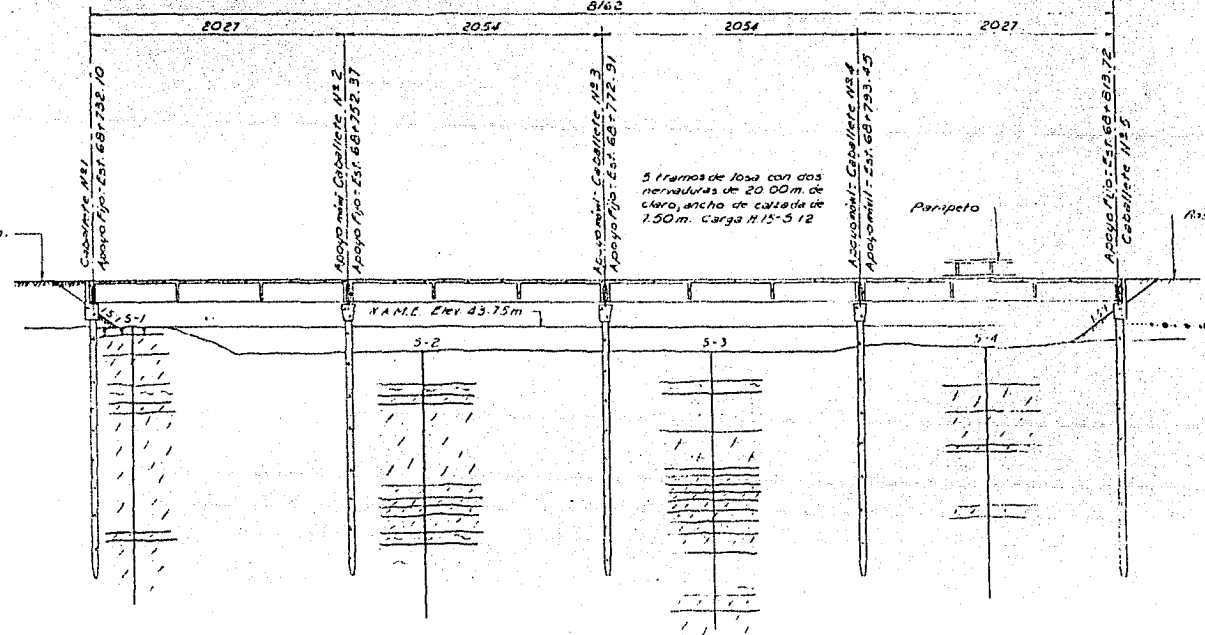 8162
2027
2054
2054
2027
Caballete Nº 1
Apoyo Fijo - Est. 68+732.10
Apoyo móvil Caballete Nº 2
Apoyo Fijo - Est. 68+752.37
Apoyo móvil - Caballete Nº 3
Apoyo Fijo - Est. 68+772.91
Apoyo móvil - Caballete Nº 4
Apoyo móvil - Est. 68+793.45
Apoyo Fijo - Est. 68+813.72
Caballete Nº 5
5 tramos de losa con dos
nervaduras de 20.00 m. de
claro, ancho de calzada de
7.50 m. Carga H.15-S 12
Parapeto
N.A.M.E. Elev 43.75m
S-1
S-2
S-3
S-4